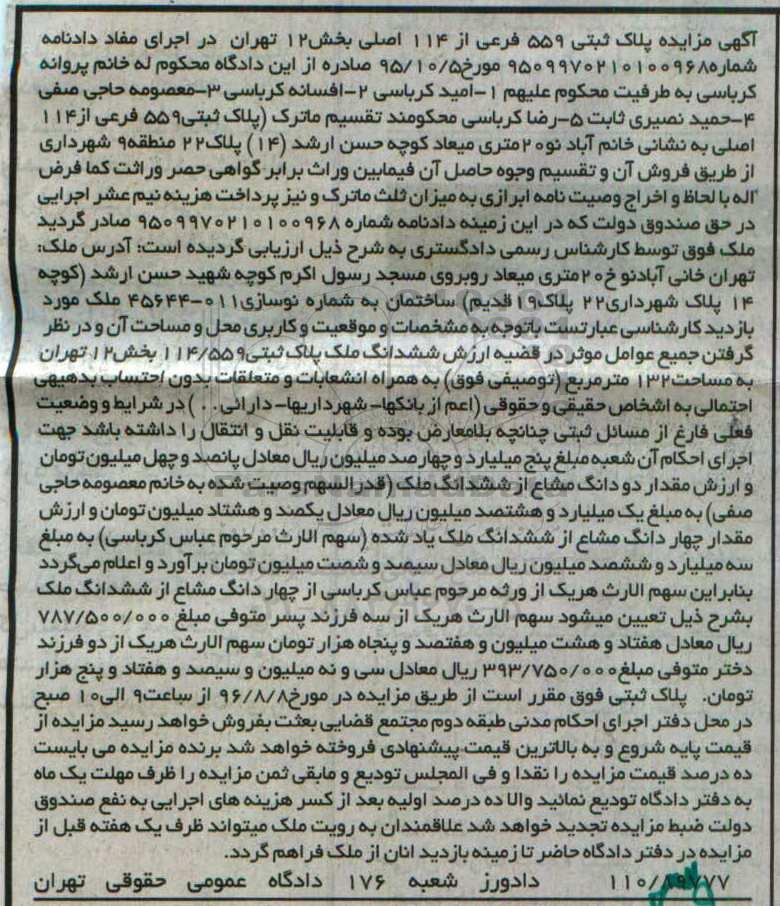 آگهی مزایده پلاک ثبتی ۵۵۹ فرعی از ۱۱۴ اصلی بخش۱۲ تهران در اجرای مفاد دادنامه
شماره۹۵۰۹۹۷۰۲۱۰۱۰۰۹۶۸ مورخ۹۵/۱۰/۵ صادره از این دادگاه محکوم له خانم پروانه
کرباسی به طرفیت محکوم علیهم ۱-امید کرباسی ۲-افسانه کرباسی ۳-معصومه حاجی صفی
۴-حمید نصیری ثابت ۵-رضا کرباسی محکومند تقسیم ماترک (پلاک ثبتی۵۵۹ فرعی از۱۱۴
اصلی به نشانی خانم آباد نو۲۰متری میعاد کوچه حسن ارشد (۱۴) پلاک۲۲ منطقه۹ شهرداری
از طریق فروش آن و تقسیم وجوه حاصل آن فیمابین وراث برابر گواهی حصر وراثت کما فرض
اله با لحاظ و اخراج وصیت نامه ابرازی به میزان ثلث ماترک و نیز پرداخت هزینه نیم عشر اجرایی
در حق صندوق دولت که در این زمینه دادنامه شماره ۹۵۰۹۹۷۰۲۱۰۱۰۰۹۶۸ صادر گردید
ملک فوق توسط کارشناس رسمی دادگستری به شرح ذیل ارزیابی گردیده است: آدرس ملک:
تهران خانی آبادنو خ۲۰متری میعاد روبروی مسجد رسول اکرم کوچه شهید حسن ارشد (کوچه
۱۴ پلاک شهرداری۲۲ پلاک۱۹قدیم) ساختمان به شماره نوسازی۰۱۱-۴۵۶۴۴ ملک مورد
بازدید کارشناسی عبارتست باتوجه به مشخصات و موقعیت و کاربری محل و مساحت آن و در نظر
گرفتن جمیع عوامل موثر در قضیه ارزش ششدانگ ملک پلاک ثبتی۱۱۴/۵۵۹ بخش۱۲ تهران
به مساحت۱۳۲ مترمربع (توصیفی فوق) به همراه انشعابات و متعلقات بدون احتساب بدهیهی
احتمالی به اشخاص حقیقی و حقوقی (اعم از بانکها- شهرداریها- دارائی...) در شرایط و وضعیت
فعلی فارغ از مسائل ثبتی چنانچه بلامعارض بوده و قابلیت نقل و انتقال را داشته باشد جهت
اجرای احکام آن شعبه مبلغ پنج میلیارد و چهارصد میلیون ریال معادل پانصد و چهل میلیون تومان
و ارزش مقدار دو دانگ مشاع از ششدانگ ملک (قدرالسهم وصیت شده به خانم معصومه حاجی
صفی) به مبلغ یک میلیارد و هشتصد میلیون ریال معادل یکصد و هشتاد میلیون تومان و ارزش
مقدار چهار دانگ مشاع از ششدانگ ملک یاد شده (سهم الارث مرحوم عباس کرباسی) به مبلغ
سه میلیارد و ششصد میلیون ریال معادل سیصد و شصت میلیون تومان برآورد و اعلام می‌گردد
بنابراین سهم الارث هریک از ورثه مرحوم عباس کرباسی از چهار دانگ مشاع از ششدانگ ملک
بشرح ذیل تعیین میشود سهم الارث هریک از سه فرزند پسر متوفی مبلغ ۷۸۷/۵۰۰/۰۰۰
ریال معادل هفتاد و هشت میلیون و هفتصد و پنجاه هزار تومان سهم الارث هریک از دو فرزند
دختر متوفی مبلغ۳۹۳/۷۵۰/۰۰۰ ریال معادل سی و نه میلیون و سیصد و هفتاد و پنج هزار
تومان. پلاک ثبتی فوق مقرر است از طریق مزایده در مورخ۹۶/۸/۸ از ساعت۹ الی۱۰ صبح
در محل دفتر اجرای احکام مدنی طبقه دوم مجتمع قضایی بعثت بفروش خواهد رسید مزایده از
قیمت پایه شروع و به بالاترین قیمت پیشنهادی فروخته خواهد شد برنده مزایده می بایست
ده درصد قیمت مزایده را نقدا و فی المجلس تودیع و مابقی ثمن مزایده را ظرف مهلت یک ماه
به دفتر دادگاه تودیع نمائید والا ده درصد اولیه بعد از کسر هزینه های اجرایی به نفع صندوق
دولت ضبط مزایده تجدید خواهد شد علاقمندان به رویت ملک میتواند ظرف یک هفته قبل از
مزایده در دفتر دادگاه حاضر تا زمینه بازدید انان از ملک فراهم گردد.
۱۱۰/۸۹۷۷۷ دادورز شعبه ۱۷۶ دادگاه عمومی حقوقی تهران